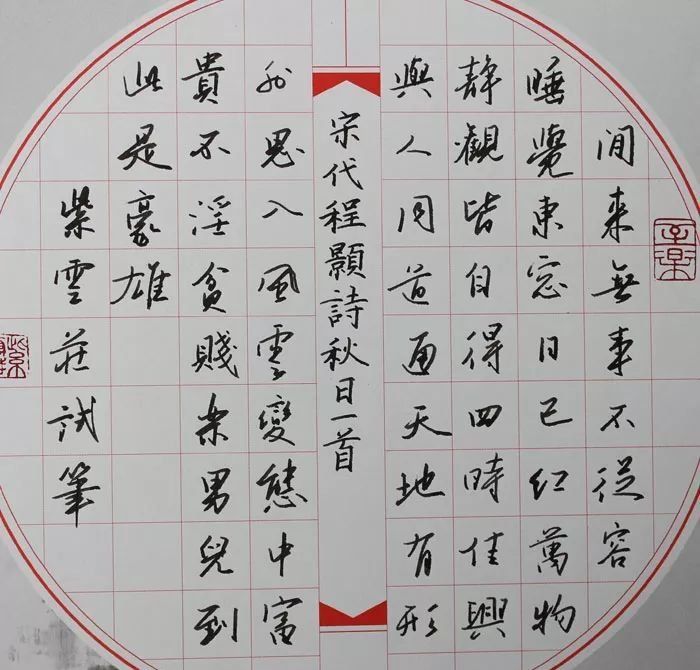 間来無事不從容
睡覺東窓日已紅萬物
靜觀皆自得四時佳興
與人同道通天地有形
宋代程顥詩秋日一首
外思入風雲變態中富
貴不淫貧賤樂男兒到
此是豪雄
紫雲莊試筆